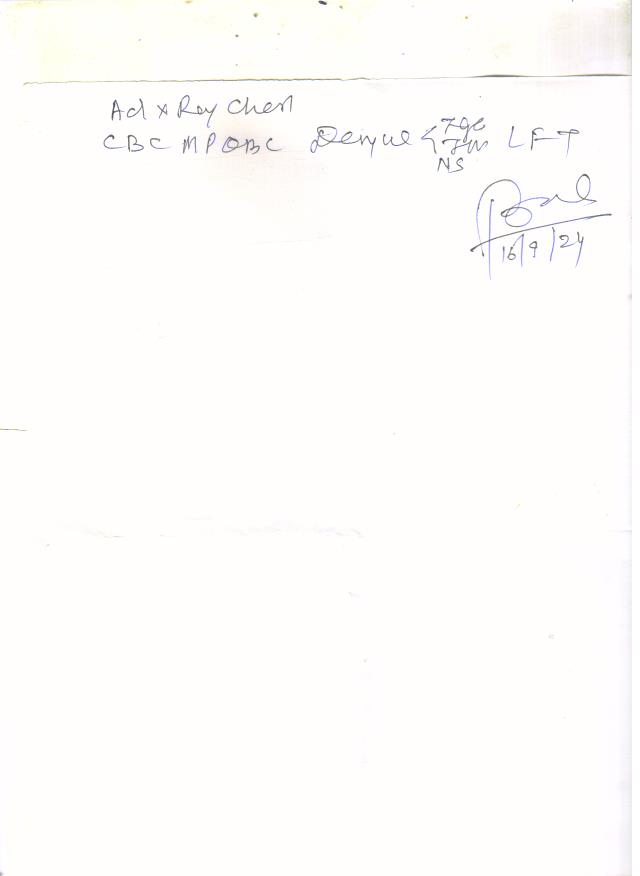 Ad x Ray Chest
CBC MP QBC Dengue < IgG
IgM LFT
NS
16/9/24